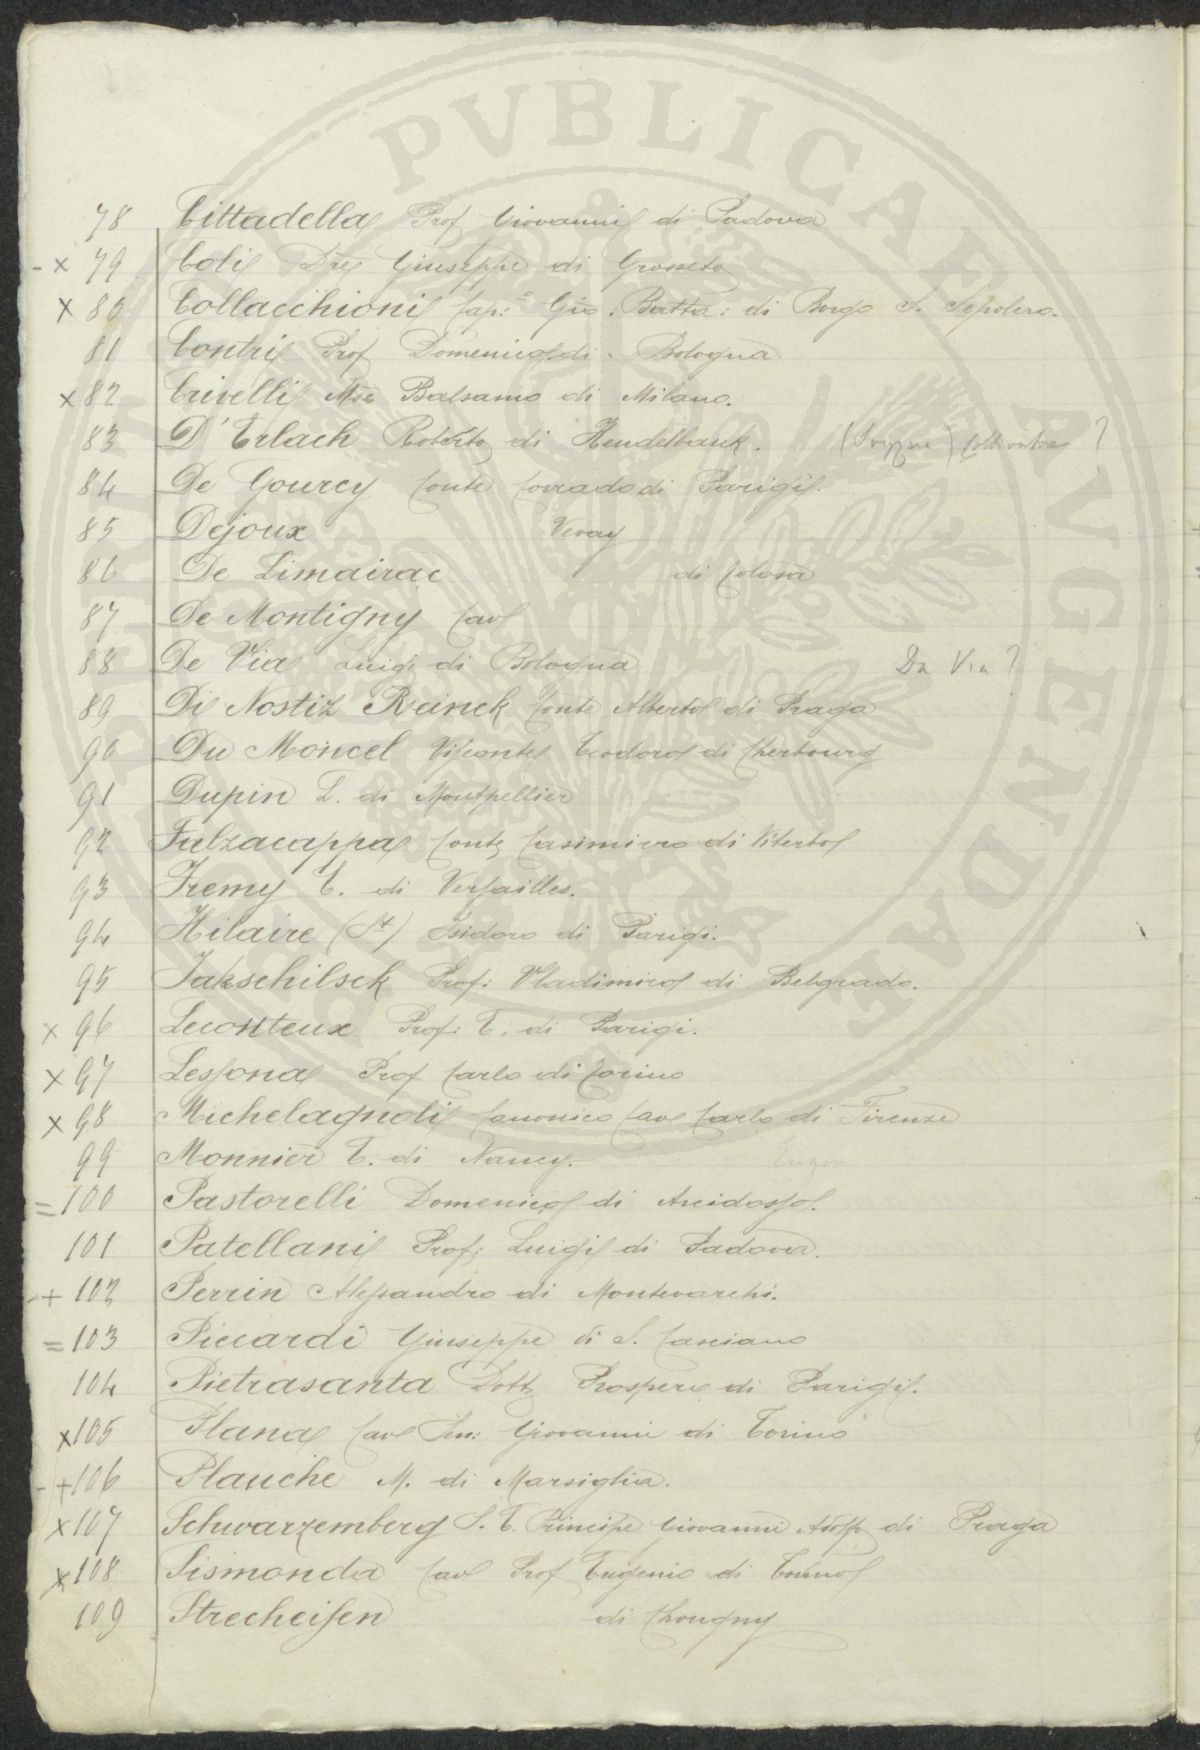 PVBLICAE AVGENDAE
78 Cittadella Prof Giovanni di Padova
- x 79 Coli Dre Giuseppe di Grosseto
x 80 Collacchioni Cap: Gio: Batta: di Borgo S. Sepolcro.
81 Contri Prof Domenico di Bologna.
x 82 Crivelli Mse Balsamo di Milano.
83 D'Erlach Roberto di Hendelbank. (Svizzera) Coltivatore ?
84 De Gourcy Conte Corrado di Parigi.
85 Dejoux Vevay
86 De Limairac di Tolosa
87 De Montigny Cav
88 De Via Luigi di Bologna Da Via ?
89 Di Nostiz Reinek Conte Alberto di Praga
90 Du Moncel Visconte Teodoro di Cherbourg
91 Dupin L. di Montpellier
92 Falzacappa Conte Casimirro di Viterbo
93 Fremy E. di Versailles.
94 Hilaire (St) Isidoro di Parigi.
95 Jakschilsck Prof: Vladimiro di Belgrado.
x 96 Leconteux Prof: E. di Parigi.
x 97 Lessona Prof Carlo di Torino
x 98 Michelagnoli Canonico Cav Carlo di Firenze
99 Monnier E. di Nancy.
= 100 Pastorelli Domenico di Arcidosso.
101 Patellani Prof: Luigi di Padova.
- + 102 Perrin Alessandro di Montevarchi.
= 103 Piccardi Giuseppe di S. Casciano
104 Pietrasanta Dott Prospero di Parigi.
x 105 Plana Cav Sen: Giovanni di Torino
- + 106 Plauche M. di Marsiglia.
x 107 Schwarzemberg S. E. Principe Giovanni Adolf di Praga
x 108 Sismonda Cav Prof Eugenio di Torino
109 Strecheisen di Chougny